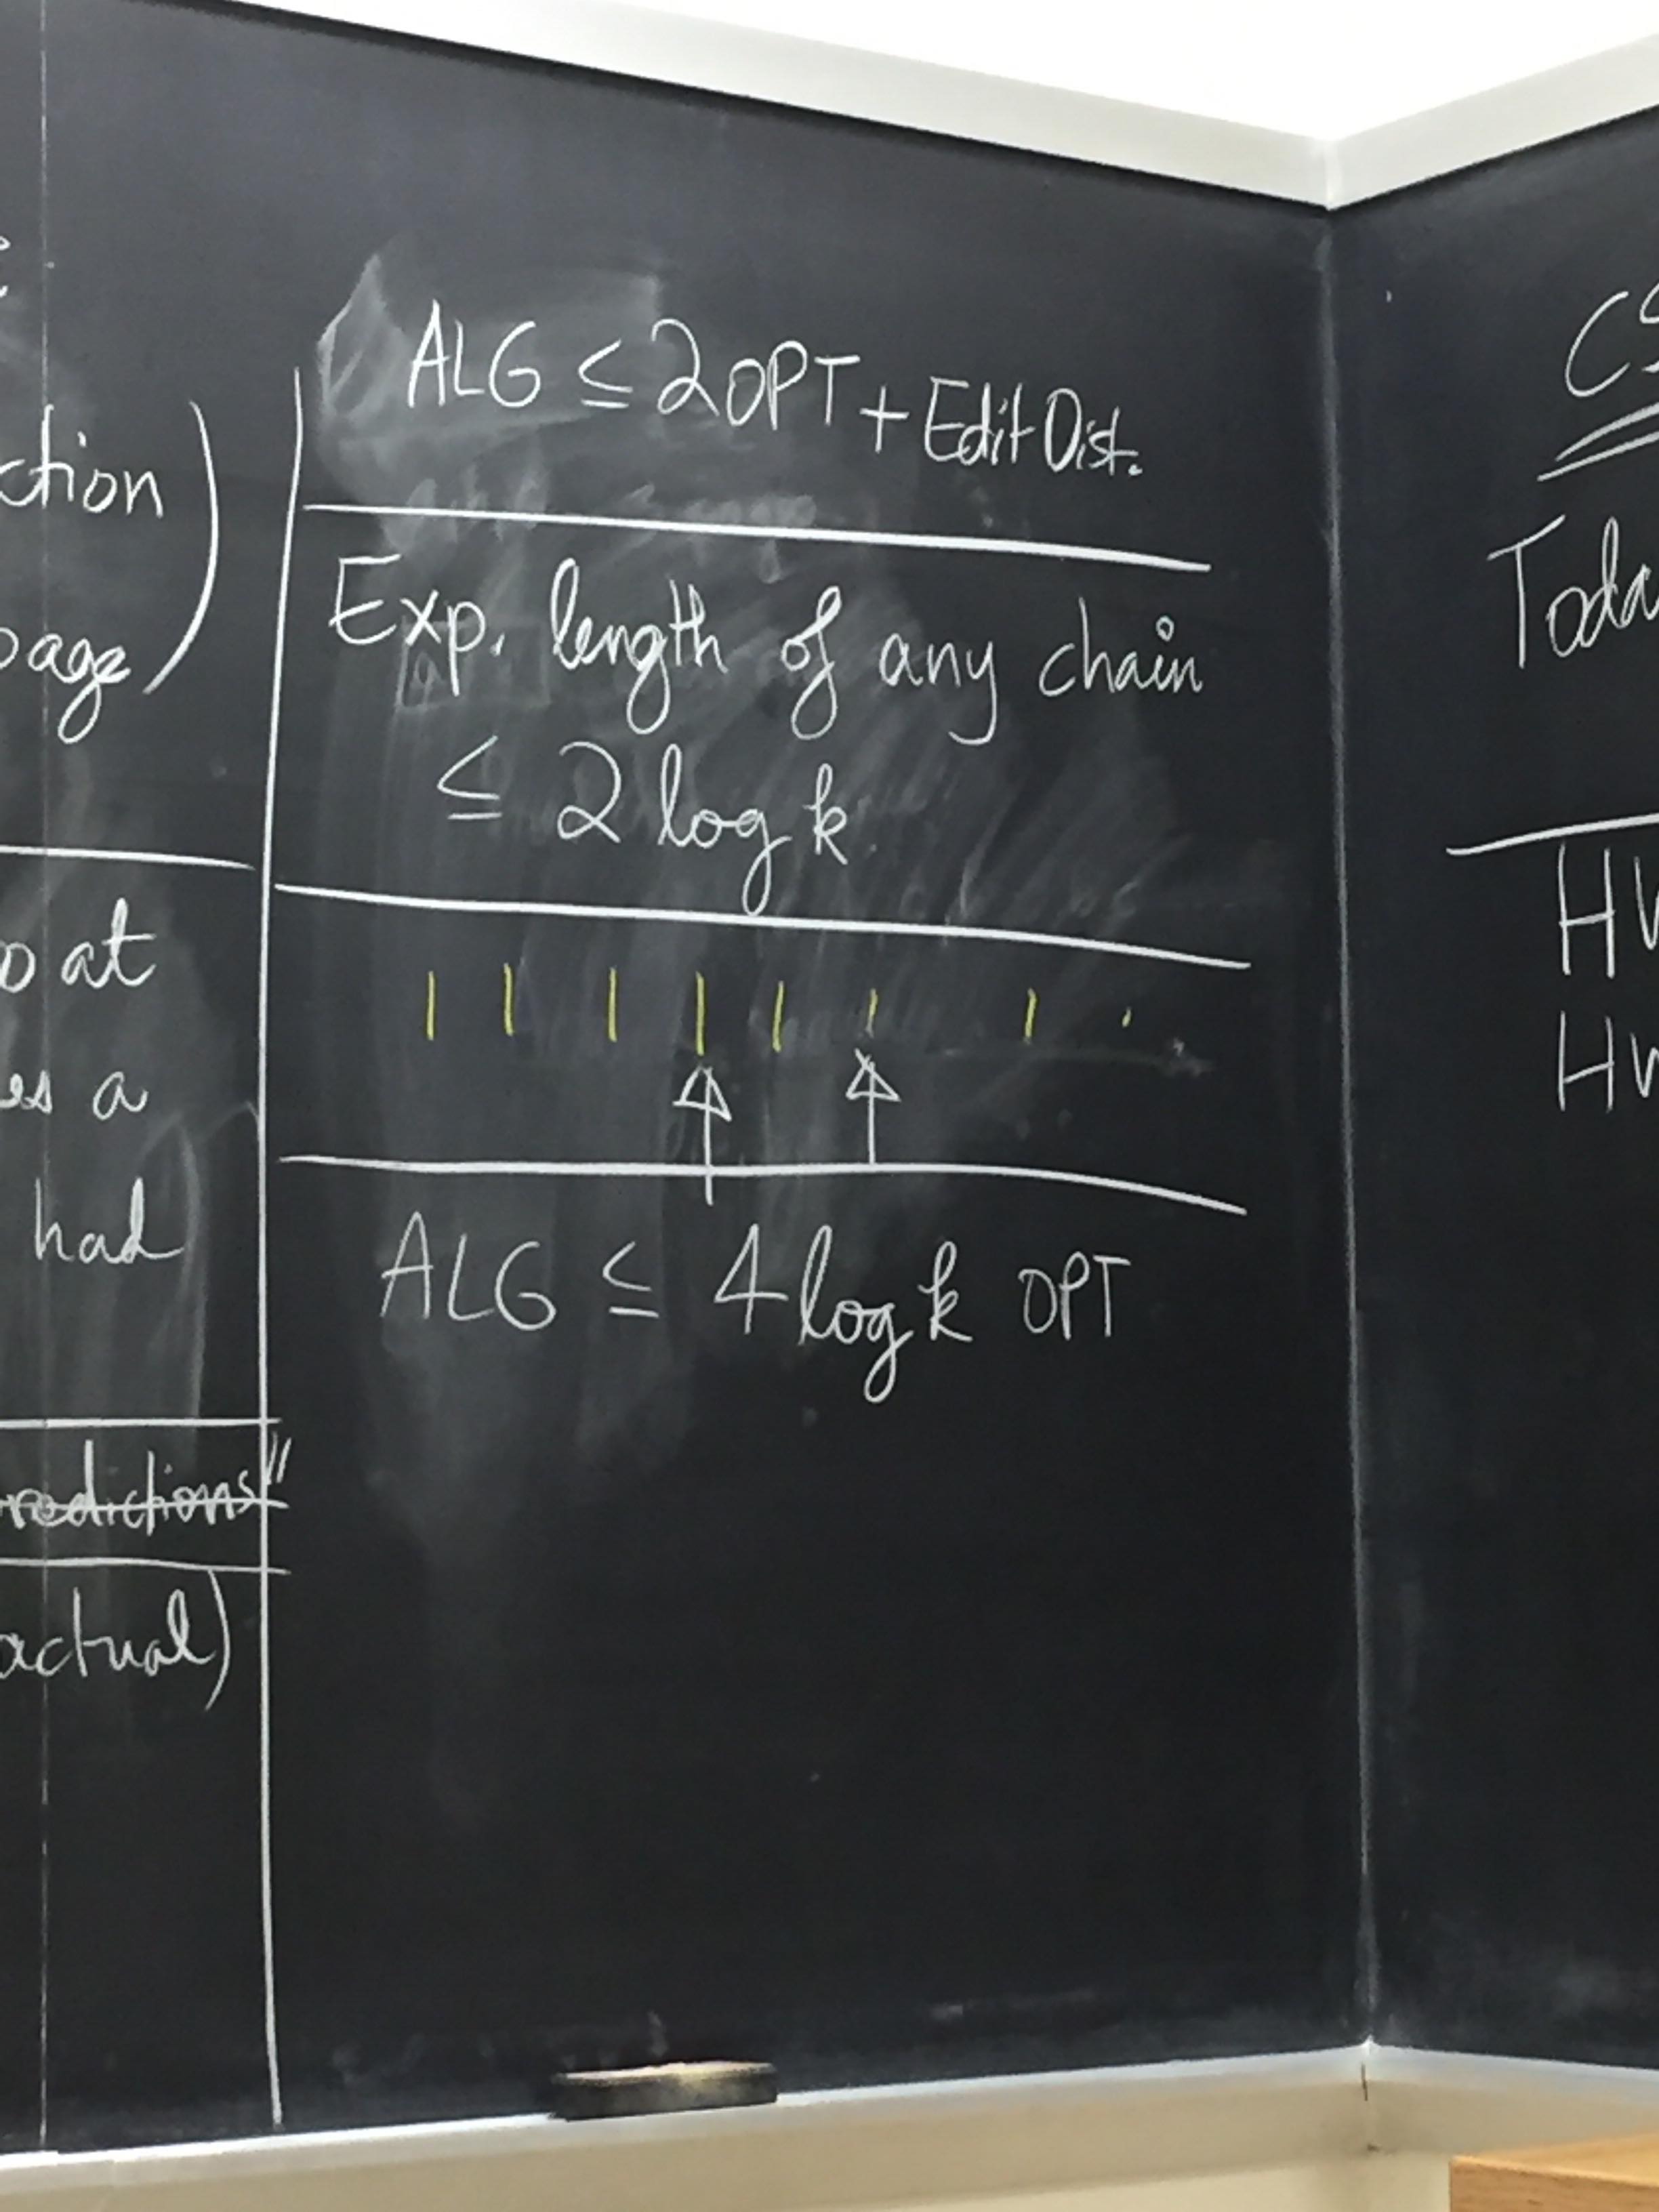 ction)
page)
o at
es a
had
redictions"
actual)
ALG ≤ 2OPT + Edit Dist.
Exp. length of any chain
≤ 2 log k
ALG ≤ 4 log k OPT
CS
Toda
HW
HW